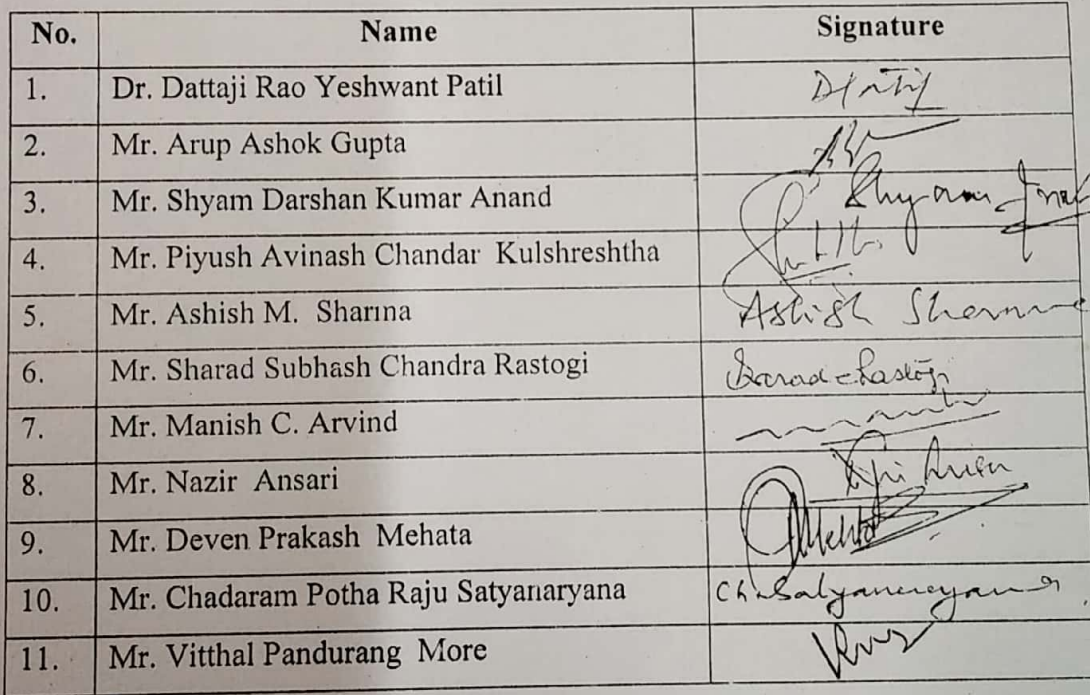 No. Name Signature
1. Dr. Dattaji Rao Yeshwant Patil
2. Mr. Arup Ashok Gupta
3. Mr. Shyam Darshan Kumar Anand Shyam
4. Mr. Piyush Avinash Chandar Kulshreshtha
5. Mr. Ashish M. Sharma Ashish Sharma
6. Mr. Sharad Subhash Chandra Rastogi Sharad Rastogi
7. Mr. Manish C. Arvind
8. Mr. Nazir Ansari
9. Mr. Deven Prakash Mehata Mehta
10. Mr. Chadaram Potha Raju Satyanaryana Ch. Satyanarayana
11. Mr. Vitthal Pandurang More